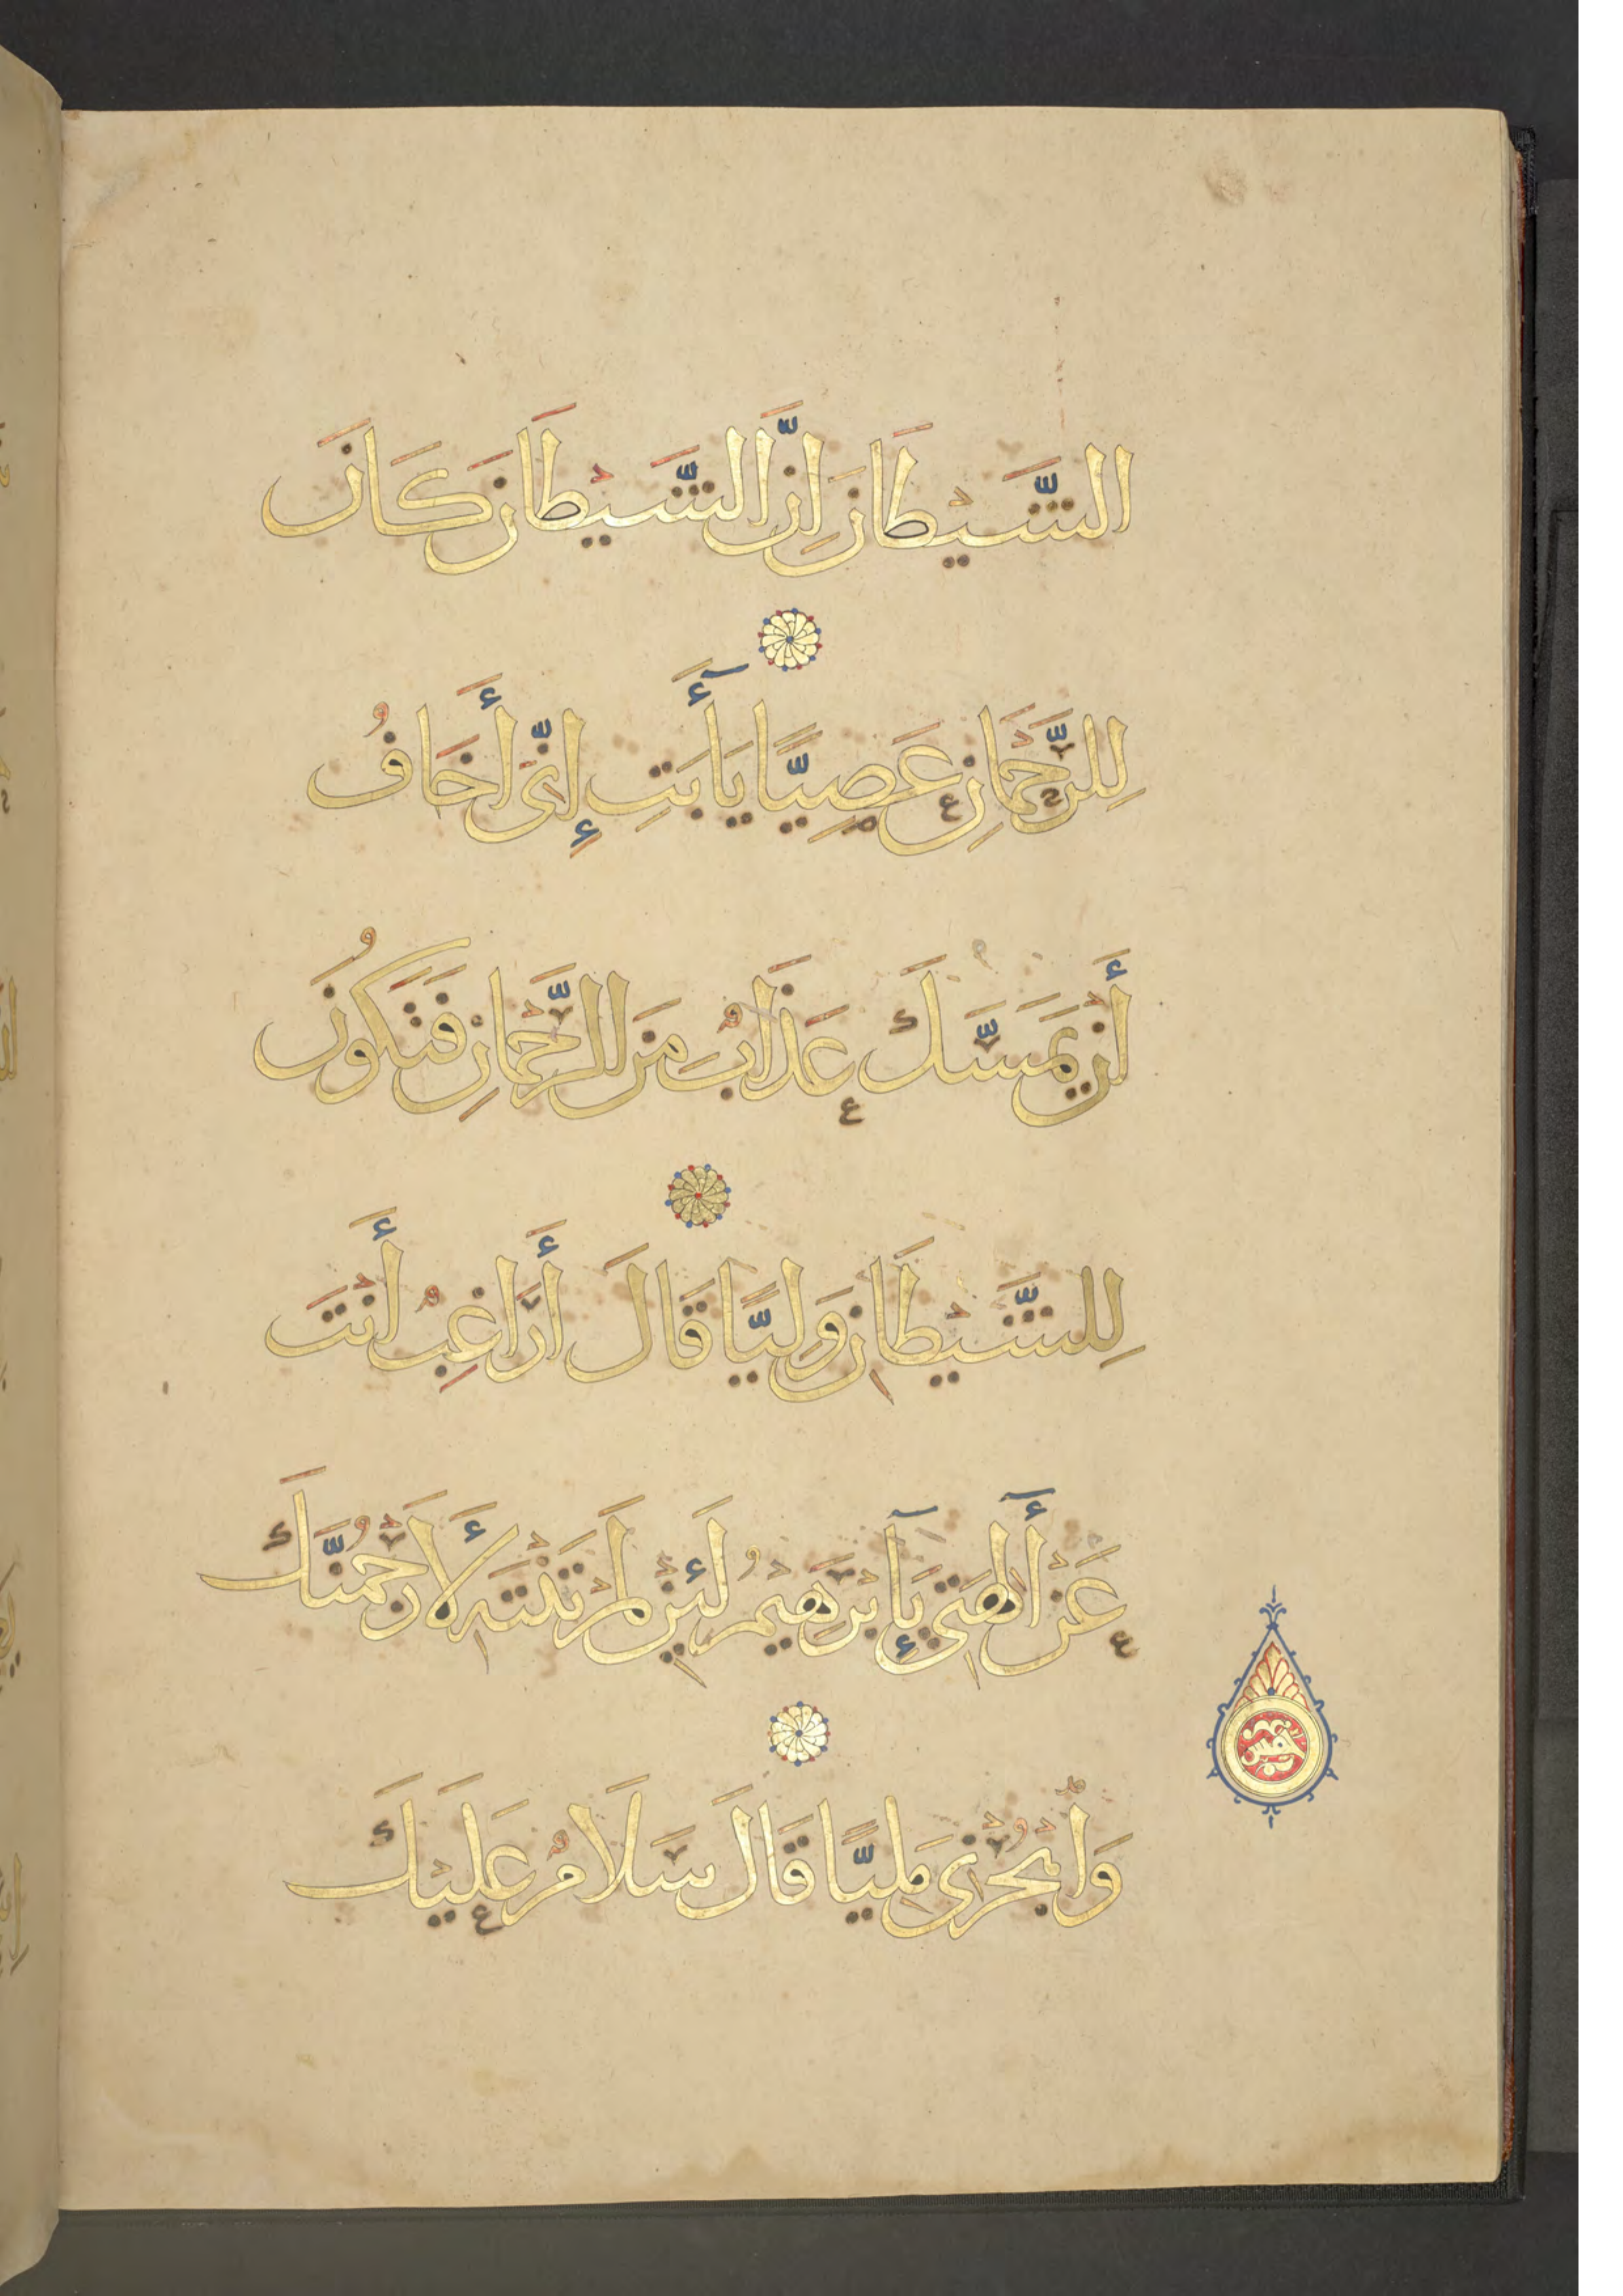 الشَّيْطَانَ إِنَّ الشَّيْطَانَ كَانَ
لِلرَّحْمَانِ عَصِيًّا يَا أَبَتِ إِنِّى أَخَافُ
أَنْ يَمَسَّكَ عَذَابٌ مِنَ الرَّحْمَانِ فَتَكُونَ
لِلشَّيْطَانِ وَلِيًّا قَالَ أَرَاغِبٌ أَنْتَ
عَنْ أَلِهَتِى يَآإِبْرَهِيْمُ لَئِنْ لَمْ تَنْتَهِ لَأَرْجُمَنَّكَ
وَاهْجُرْنِى مَلِيًّا قَالَ سَلَامٌ عَلَيْكَ